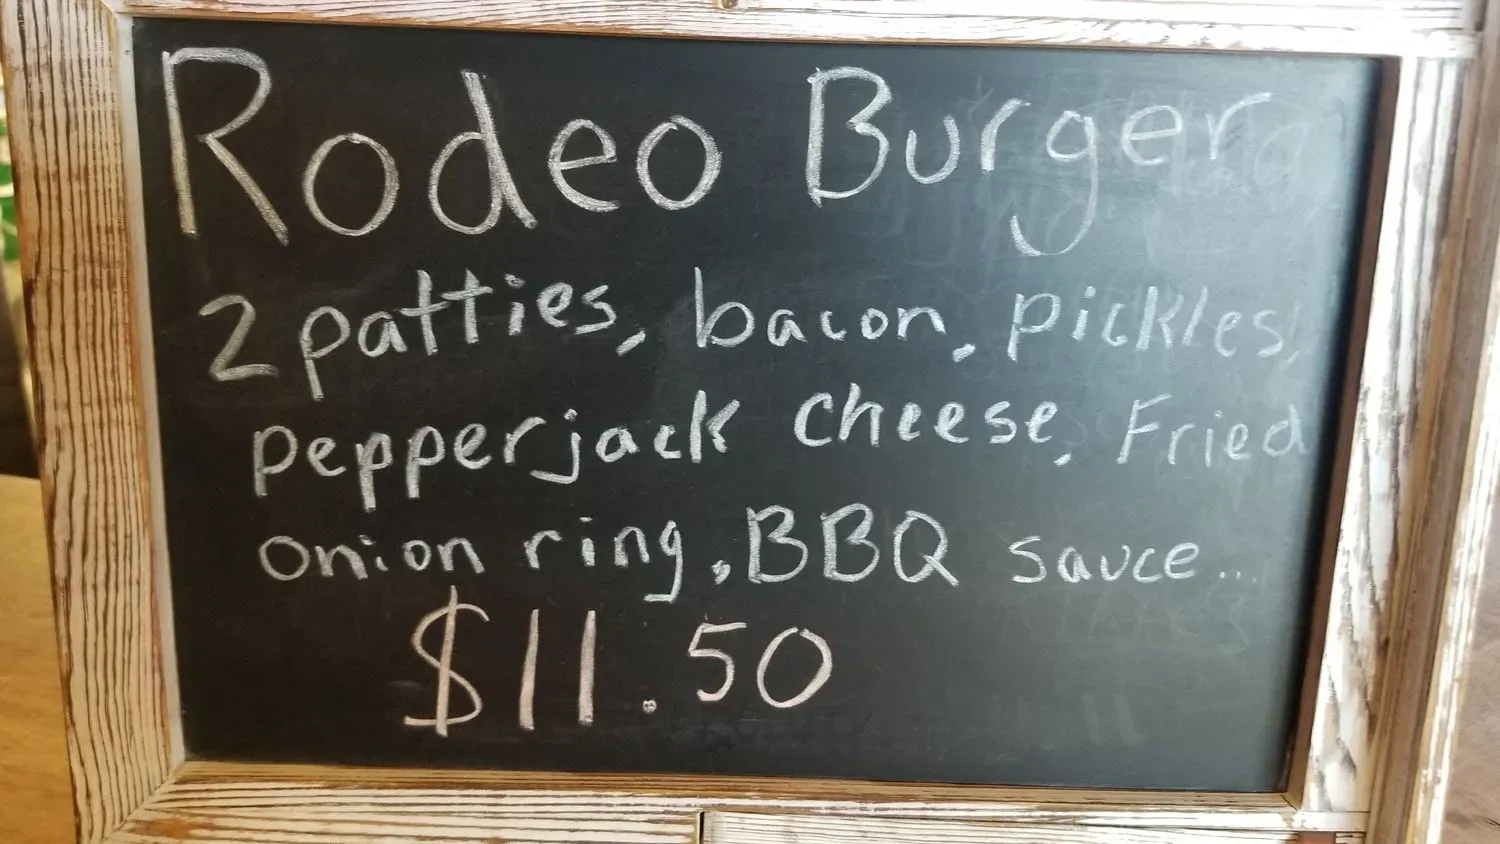 Rodeo Burger
2 patties, bacon, pickles,
pepperjack cheese, Fried
onion ring, BBQ sauce...
$11.50